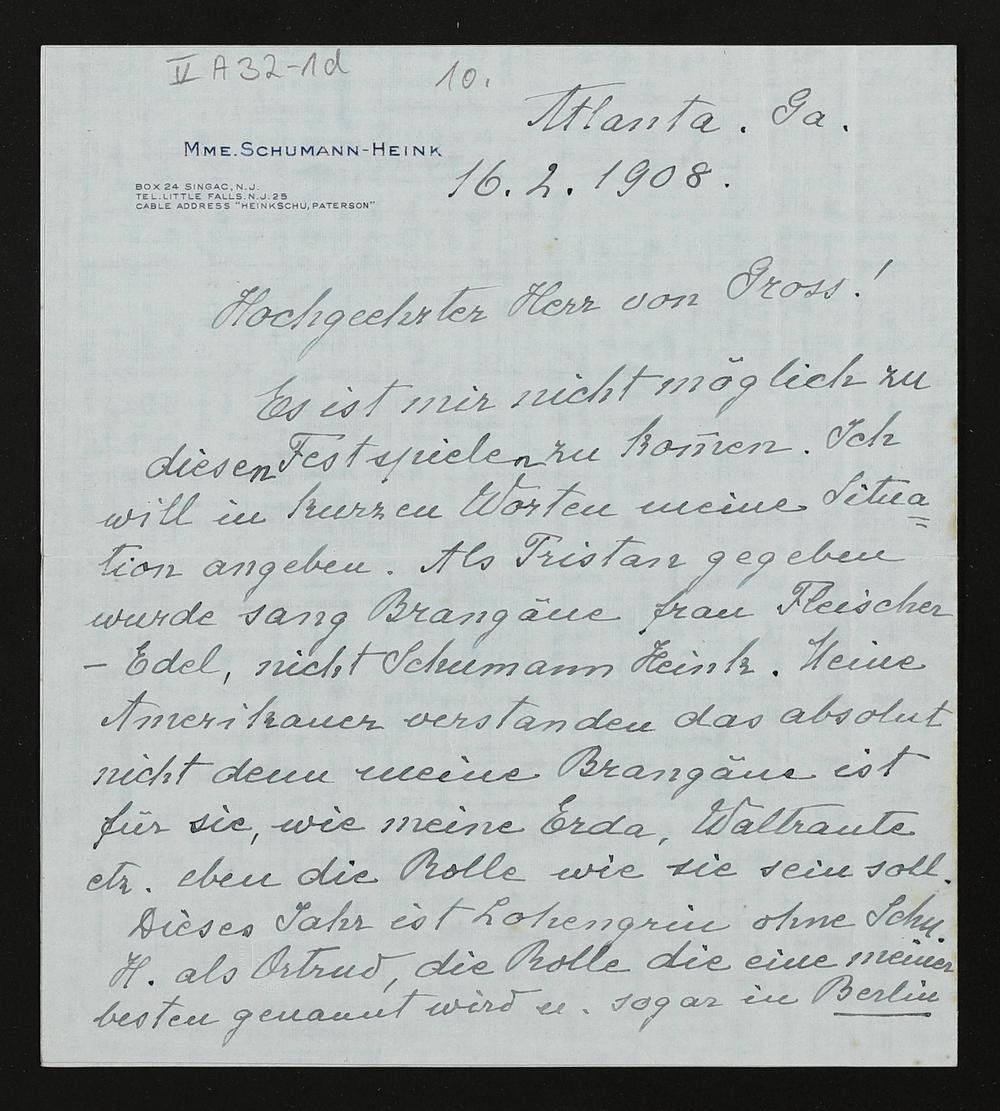 II A 32-1d
10.
Atlanta. Ga.
MME. SCHUMANN-HEINK
16. 2. 1908.
BOX 24 SINGAC, N.J.
TEL. LITTLE FALLS, N.J. 25
CABLE ADDRESS "HEINKSCHU, PATERSON"
Hochgeehrter Herr von Gross!
Es ist mir nicht möglich zu
diesen Festspielen zu kom̄en. Ich
will in kurzen Worten meine Situa=
tion angeben. Als Tristan gegeben
wurde sang Brangäne frau Fleischer
– Edel, nicht Schumann Heink. Meine
Amerikaner verstanden das absolut
nicht denn meine Brangäne ist
für sie, wie meine Erda, Waltraute
etz. eben die Rolle wie sie sein soll.
Dieses Jahr ist Lohengrin ohne Schu.
H. als Ortrud, die Rolle die eine meiner
besten genannt wird u. sogar in Berlin